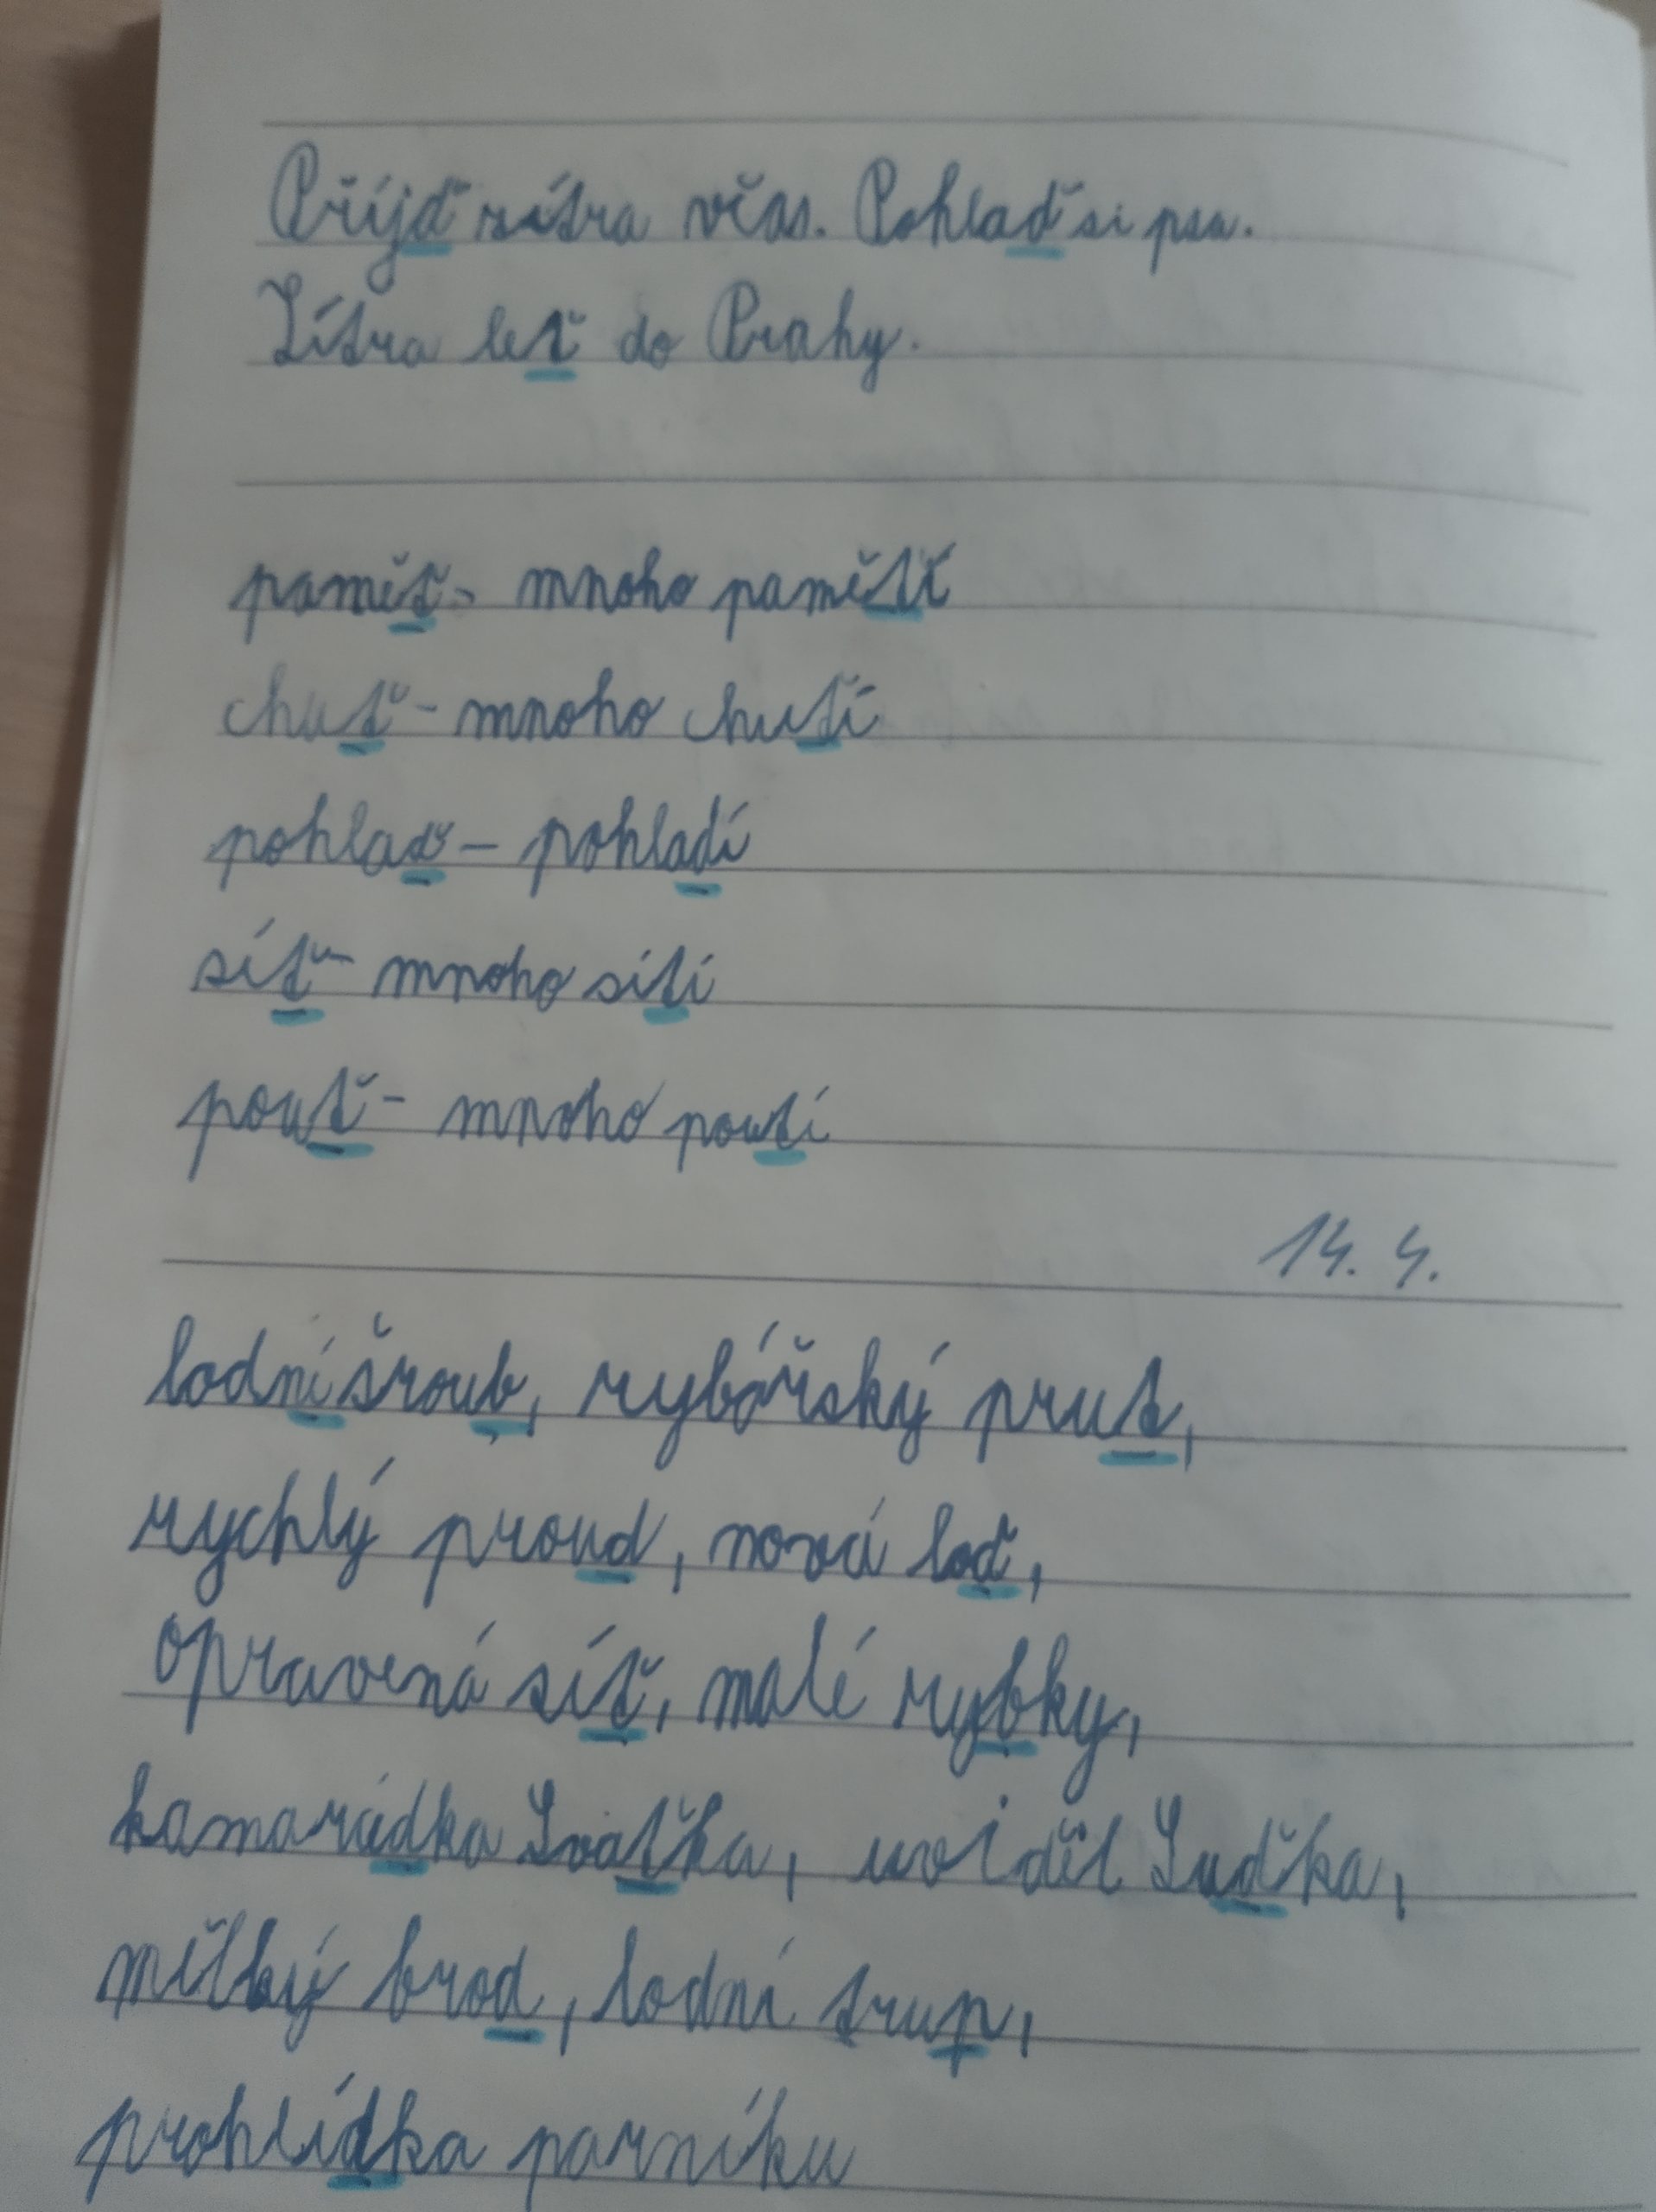 Přijď zítra včas. Pohlaď si psa.
Zítra leť do Prahy.
paměť - mnoho pamětí
chuť - mnoho chutí
pohlaď - pohladí
síť - mnoho sítí
pouť - mnoho poutí
14. 4.
lodní šroub, rybářský prut,
rychlý proud, nová loď,
opravená síť, malé rybky,
kamarádka Svaťka, uviděl Luďka,
mělký brod, lodní trup,
prohlídka parníku